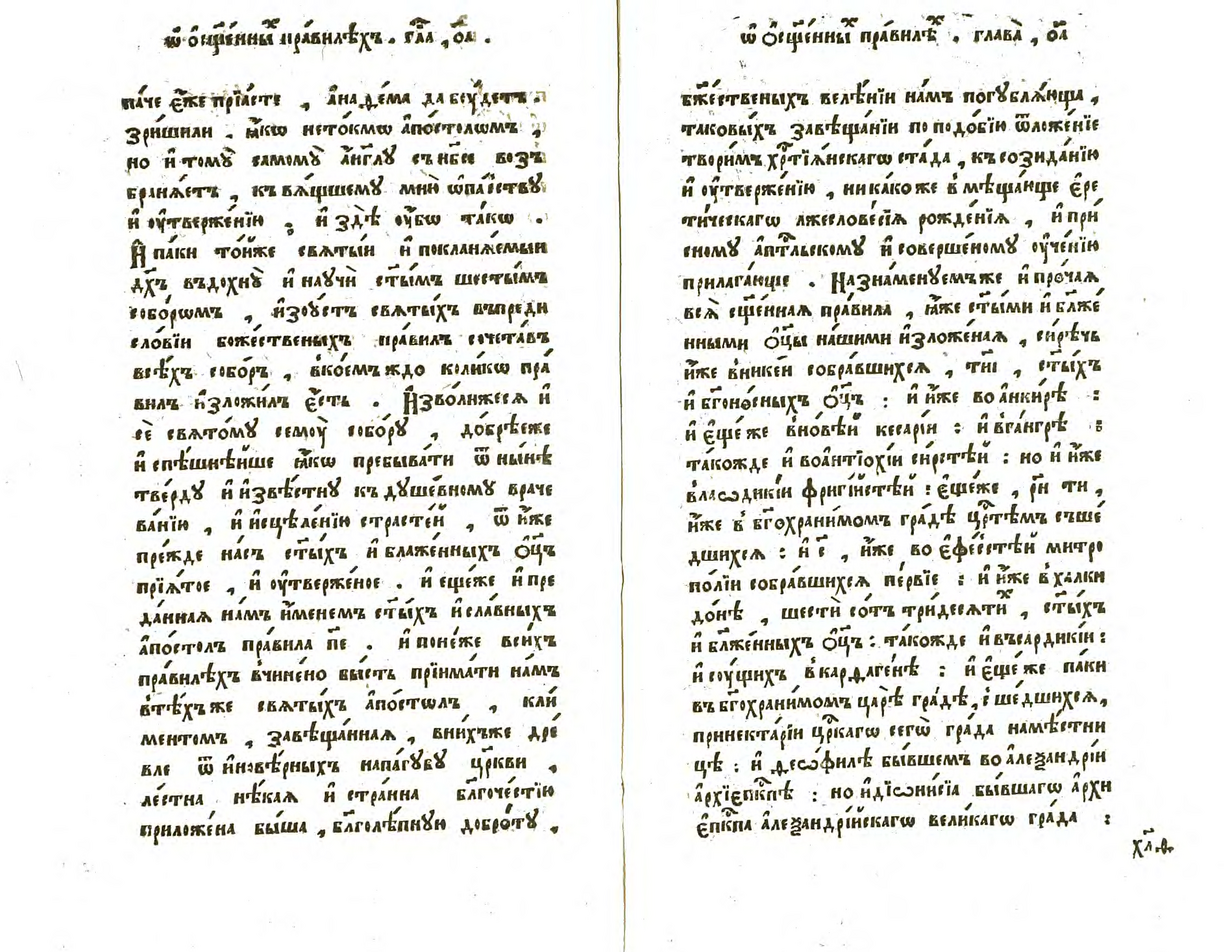 ѿ ѻ҆сщ҃е́нныⷯ пра́вилѣхъ . гла̀ , о҃а .
па́че є҆́же прїа́сте , а҆наѳе́ма да бѹ́детъ .
зри́шили . ꙗ҆́кѡ нето́кмѡ а҆по́столѡмъ ,
но и҆ томꙋ̀ самомꙋ̀ а҆́гг҃лꙋ съ нб҃се воз̾
браня́етъ , къ вя́щшемꙋ мню̀ ѡ҆па́сствꙋ
и҆ ѹ҆твержє́нїю , и҆ здѣ̀ ѹ҆́бѡ та́кѡ .
И҆ па́ки то́йже святы́й и҆ покланя́емый
дх҃ъ въдохнꙋ̀ и҆ наѹчѝ ст҃ы́мъ шесты́мъ
собо́рѡмъ , и҆зоу́стъ святы́хъ въпреди
сло́вїи боже́ственыхъ пра́вилъ сочета́въ
всѣ́хъ собо́ръ , в̾ко́емъждо коли́кѡ пра́
вилъ и҆зложи́лъ є҆́сть . И҆зво́лижеся и҆
сѐ свято́мꙋ семоу̀ собо́рꙋ , до́брѣеже
и҆ спѣ́шнѣйше ꙗ҆́кѡ пребыва́ти ѿ ны́нѣ
тве́рдꙋ и҆ и҆звѣ́стнꙋ къ дꙋше́вномꙋ враче
ва́нїю , и҆ и҆сцѣле́нїю страсте́й , ѿ и҆́же
пре́жде на́съ ст҃ы́хъ и҆ блаже́нныхъ ѻ҆ц҃ъ
прїя́тое , и҆ ѹ҆тверже́ное . и҆ є҆ще́же и҆ пре
да́нная на́мъ и҆́менемъ ст҃ы́хъ и҆ сла́вныхъ
а҆по́столъ пра́вила п҃е . и҆ поне́же всѝхъ
пра́вилѣхъ в̾чинено̀ бы́сть прїима́ти на́мъ
в̾тѣ́хъ же святы́хъ а҆по́столъ , кли́
ментомъ , завѣща́нная , вни́хъже дре́
вле ѿ и҆новѣ́рныхъ напа́гꙋбꙋ цр҃кви ,
ле́стна нѣ́кая и҆ стра́нна бл҃гоче́стїю
приложе́на бы́ша , бл҃голѣ́пнꙋю добро́тꙋ ,
ѿ ѻ҆сщ҃е́нныⷯ пра́вилѣⷯ . глава̀ , о҃а
бж҃е́ственыхъ велѣ́нїи на́мъ погꙋбля́юща ,
таковы́хъ завѣща́нїи по подо́бїю ѿложе́нїе
твори́мъ хрⷭ҇тїя́нскагѡ ста́да , къ созида́нїю
и҆ ѹ҆тверже́нїю , ника́коже в̾мѣща́юще є҆ре
ти́ческагѡ лжеслове́сїя рожде́нїя , и҆ при́
сномꙋ а҆пⷭ҇тльскомꙋ и҆ соверше́номꙋ ѹ҆че́нїю
прилага́юще . Назна́менꙋемъже и҆ про́чая
вся̀ сщ҃е́нная пра́вила , ꙗ҆́же ст҃ы́ми и҆ бл҃же́
нными ѻ҆ц҃ы на́шими и҆зложе́ная , си́рѣчь
и҆́же в̾нике́и собра́вшихся , ти҃і , ст҃ы́хъ
и҆ бг҃оно́сныхъ ѻ҆ц҃ъ : и҆ и҆́же во а҆нки́рѣ :
и҆ є҆ще́же в̾но́вѣй кесарі́и : и҆ вга́нгрѣ :
та́кожде и҆ воа҆нтїохі́и си́рстѣй : но и҆ и҆́же
в̾лаѡдикі́и фригі́йстѣй : є҆ще́же , рн҃ ти ,
и҆́же в̾ бг҃охрани́момъ гра́дѣ црⷭ҇тѣмъ съше́
дшихся : и҆ с҃ , и҆́же во є҆фе́сстѣй митро
по́лїи собра́вшихся пе́рвїе : и҆ и҆́же в̾халки
до́нѣ , шестѝ со́тъ три́десятиⷯ , ст҃ы́хъ
и҆ бл҃же́нныхъ ѻ҆ц҃ъ : та́кожде и҆ въсардикі́и :
и҆ сѹ́щихъ в̾карѳаге́нѣ : и҆ є҆ще́ же па́ки
въ бг҃охрани́момъ ца́рѣ гра́дѣ , сше́дшихся ,
принекта́рїи цр҃кагѡ сегѡ̀ гра́да намѣ́стни
цѣ : и҆ ѳеѡфи́лѣ бы́вшемъ во алеѯандрі́и
а҆рхїєпⷭ҇кпѣ : но и҆ дїѡни́сїа бы́вшагѡ а҆рхи
є҆пⷭ҇кпа а҆леѯандрі́йскагѡ вели́кагѡ гра́да :